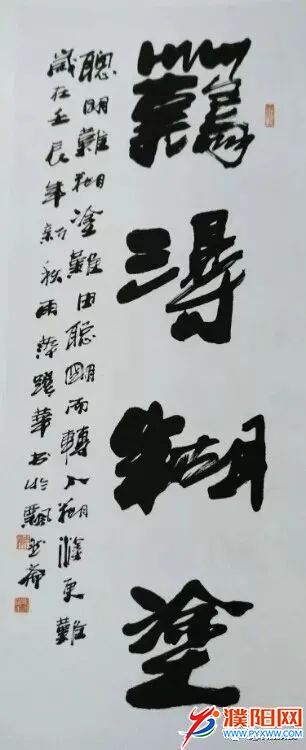 難得糊塗
聰明難糊塗難由聰明而轉入糊塗更難
歲在壬辰年新秋雨 華书於飄逸齋
濮阳网
WWW.PYXWW.COM